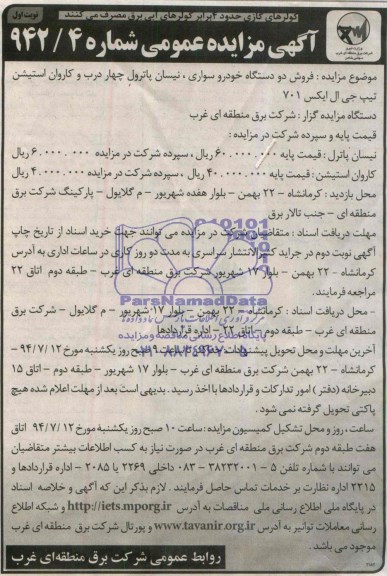 کولرهای گازی حدود ۴برابر کولرهای آبی برق مصرف می کنند
نوبت اول
آگهی مزایده عمومی شماره ۴ / ۹۴۲
موضوع مزایده : فروش دو دستگاه خودرو سواری ، نیسان پاترول چهار درب و کاروان استیشن
تیپ جی ال ایکس ۷۰۱
دستگاه مزایده گزار : شرکت برق منطقه ای غرب
قیمت پایه و سپرده شرکت در مزایده :
نیسان پاترل : قیمت پایه ۶۰.۰۰۰.۰۰۰ ریال ، سپرده شرکت در مزایده ۶.۰۰۰.۰۰۰ ریال
کاروان استیشن : قیمت پایه ۴۰.۰۰۰.۰۰۰ ریال ، سپرده شرکت در مزایده ۴.۰۰۰.۰۰۰ ریال
محل بازدید : کرمانشاه – ۲۲ بهمن – بلوار هفده شهریور – م گلایول – پارکینگ شرکت برق
منطقه ای – جنب تالار برق
مهلت دریافت اسناد : متقاضیان شرکت در مزایده می توانند جهت خرید اسناد از تاریخ چاپ
آگهی نوبت دوم در جراید کثیرالانتشار سراسری به مدت دو روز کاری در ساعات اداری به آدرس
کرمانشاه – ۲۲ بهمن – بلوار ۱۷ شهریور شرکت برق منطقه ای غرب – طبقه دوم اتاق ۲۲
مراجعه فرمایند.
– محل دریافت اسناد : کرمانشاه – ۲۲ بهمن – بلوار ۱۷ شهریور – م گلایول – شرکت برق
منطقه ای غرب – طبقه دوم – اتاق ۲۲ – اداره قراردادها
آخرین مهلت و محل تحویل پیشنهادات : ساعت ۹ صبح روز یکشنبه مورخ ۹۴/۷/۱۲ –
کرمانشاه ۲۲ بهمن شرکت برق منطقه ای غرب – بلوار ۱۷ شهریور – طبقه دوم – اتاق ۱۵
دبیرخانه (دفتر) امور تدارکات و قراردادها با اخذ رسید . بدیهی است بعد از مهلت اعلام شده هیچ
پاکتی تحویل گرفته نمی شود.
ساعت ، روز و محل تشکیل کمیسیون مزایده : ساعت ۱۰ صبح روز یکشنبه مورخ ۹۴/۷/۱۲ اتاق
هفت طبقه دوم شرکت برق منطقه ای غرب در صورت نیاز به کسب اطلاعات بیشتر متقاضیان
می توانند با شماره تلفن ۵ – ۳۸۲۳۲۰۰۱ – ۰۸۳ داخلی ۲۲۶۹ یا ۲۰۸۵ اداره قراردادها و
۲۲۱۵ اداره نظارت بر خدمات تماس حاصل فرمایند . لازم بذکر این که آگهی و خلاصه اسناد
در پایگاه ملی اطلاع رسانی ملی مناقصات به آدرس http://iets.mporg.ir و شبکه اطلاع
رسانی معاملات توانیر به آدرس www.tavanir.org.ir و پورتال شرکت برق منطقه ای غرب
موجود می باشد .
روابط عمومی شرکت برق منطقه‌ای غرب
ParsNamadData
پایگاه اطلاع رسانی مناقصه و مزایده
۰۲۱-۸۸۳۴۹۶۷۰-۵